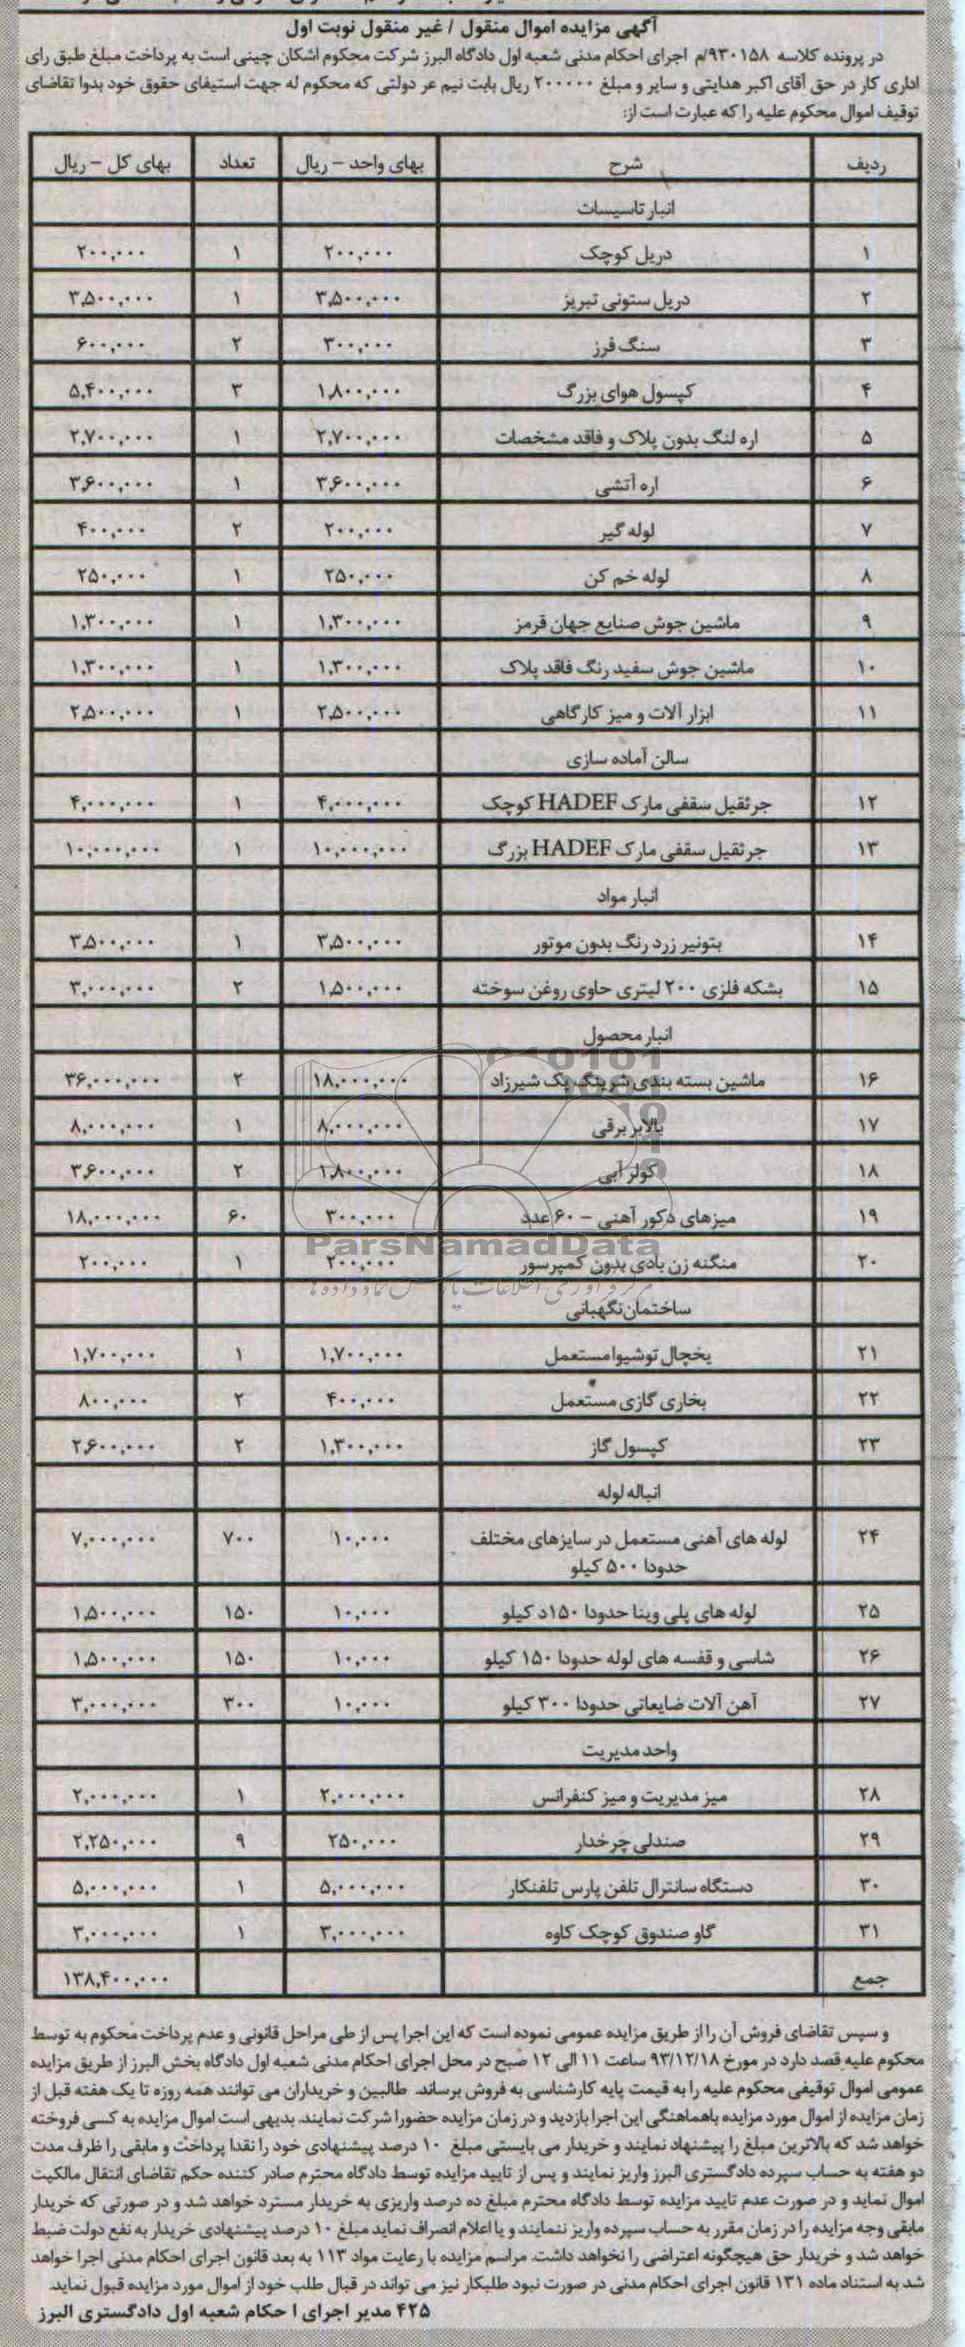 آگهی مزایده اموال منقول / غیر منقول نوبت اول
در پرونده کلاسه ۹۳۰۱۵۸/م اجرای احکام مدنی شعبه اول دادگاه البرز شرکت محکوم اشکان چینی است به پرداخت مبلغ طبق رای
اداری کار در حق آقای اکبر هدایتی و سایر و مبلغ ۲۰۰۰۰۰ ریال بابت نیم عر دولتی که محکوم له جهت استیفای حقوق خود بدوا تقاضای
توقیف اموال محکوم علیه را که عبارت است از:
ردیف شرح بهای واحد – ریال تعداد بهای کل – ریال
انبار تاسیسات
۱ دریل کوچک ۲۰۰,۰۰۰ ۱ ۲۰۰,۰۰۰
۲ دریل ستونی تبریز ۳,۵۰۰,۰۰۰ ۱ ۳,۵۰۰,۰۰۰
۳ سنگ فرز ۳۰۰,۰۰۰ ۲ ۶۰۰,۰۰۰
۴ کپسول هوای بزرگ ۱,۸۰۰,۰۰۰ ۳ ۵,۴۰۰,۰۰۰
۵ اره لنگ بدون پلاک و فاقد مشخصات ۲,۷۰۰,۰۰۰ ۱ ۲,۷۰۰,۰۰۰
۶ اره آتشی ۳,۶۰۰,۰۰۰ ۱ ۳,۶۰۰,۰۰۰
۷ لوله گیر ۲۰۰,۰۰۰ ۲ ۴۰۰,۰۰۰
۸ لوله خم کن ۲۵۰,۰۰۰ ۱ ۲۵۰,۰۰۰
۹ ماشین جوش صنایع جهان قرمز ۱,۳۰۰,۰۰۰ ۱ ۱,۳۰۰,۰۰۰
۱۰ ماشین جوش سفید رنگ فاقد پلاک ۱,۳۰۰,۰۰۰ ۱ ۱,۳۰۰,۰۰۰
۱۱ ابزار آلات و میز کارگاهی ۲,۵۰۰,۰۰۰ ۱ ۲,۵۰۰,۰۰۰
سالن آماده سازی
۱۲ جرثقیل سقفی مارک HADEF کوچک ۴,۰۰۰,۰۰۰ ۱ ۴,۰۰۰,۰۰۰
۱۳ جرثقیل سقفی مارک HADEF بزرگ ۱۰,۰۰۰,۰۰۰ ۱ ۱۰,۰۰۰,۰۰۰
انبار مواد
۱۴ بتونیر زرد رنگ بدون موتور ۳,۵۰۰,۰۰۰ ۱ ۳,۵۰۰,۰۰۰
۱۵ بشکه فلزی ۲۰۰ لیتری حاوی روغن سوخته ۱,۵۰۰,۰۰۰ ۲ ۳,۰۰۰,۰۰۰
انبار محصول
۱۶ ماشین بسته بندی شرینگ پک شیرزاد ۱۸,۰۰۰,۰۰۰ ۲ ۳۶,۰۰۰,۰۰۰
۱۷ بالابر برقی ۸,۰۰۰,۰۰۰ ۱ ۸,۰۰۰,۰۰۰
۱۸ کولر آبی ۱,۸۰۰,۰۰۰ ۲ ۳,۶۰۰,۰۰۰
۱۹ میزهای دکور آهنی – ۶۰ عدد ۳۰۰,۰۰۰ ۶۰ ۱۸,۰۰۰,۰۰۰
ParsNamadData
۲۰ منگنه زن بادی بدون کمپرسور ۲۰۰,۰۰۰ ۱ ۲۰۰,۰۰۰
مرکز فرآوری اطلاعات پارس نماد داده ها
ساختمان نگهبانی
۲۱ یخچال توشیوا مستعمل ۱,۷۰۰,۰۰۰ ۱ ۱,۷۰۰,۰۰۰
۲۲ بخاری گازی مستعمل ۴۰۰,۰۰۰ ۲ ۸۰۰,۰۰۰
۲۳ کپسول گاز ۱,۳۰۰,۰۰۰ ۲ ۲,۶۰۰,۰۰۰
انباله لوله
۲۴ لوله های آهنی مستعمل در سایزهای مختلف ۱۰,۰۰۰ ۷۰۰ ۷,۰۰۰,۰۰۰
حدودا ۵۰۰ کیلو
۲۵ لوله های پلی وینا حدودا ۱۵۰د کیلو ۱۰,۰۰۰ ۱۵۰ ۱,۵۰۰,۰۰۰
۲۶ شاسی و قفسه های لوله حدودا ۱۵۰ کیلو ۱۰,۰۰۰ ۱۵۰ ۱,۵۰۰,۰۰۰
۲۷ آهن آلات ضایعاتی حدودا ۳۰۰ کیلو ۱۰,۰۰۰ ۳۰۰ ۳,۰۰۰,۰۰۰
واحد مدیریت
۲۸ میز مدیریت و میز کنفرانس ۲,۰۰۰,۰۰۰ ۱ ۲,۰۰۰,۰۰۰
۲۹ صندلی چرخدار ۲۵۰,۰۰۰ ۹ ۲,۲۵۰,۰۰۰
۳۰ دستگاه سانترال تلفن پارس تلفنکار ۵,۰۰۰,۰۰۰ ۱ ۵,۰۰۰,۰۰۰
۳۱ گاو صندوق کوچک کاوه ۳,۰۰۰,۰۰۰ ۱ ۳,۰۰۰,۰۰۰
جمع ۱۳۸,۴۰۰,۰۰۰
و سپس تقاضای فروش آن را از طریق مزایده عمومی نموده است که این اجرا پس از طی مراحل قانونی و عدم پرداخت محکوم به توسط
محکوم علیه قصد دارد در مورخ ۹۳/۱۲/۱۸ ساعت ۱۱ الی ۱۲ صبح در محل اجرای احکام مدنی شعبه اول دادگاه بخش البرز از طریق مزایده
عمومی اموال توقیفی محکوم علیه را به قیمت پایه کارشناسی به فروش برساند. طالبین و خریداران می توانند همه روزه تا یک هفته قبل از
زمان مزایده از اموال مورد مزایده باهماهنگی این اجرا بازدید و در زمان مزایده حضورا شرکت نمایند. بدیهی است اموال مزایده به کسی فروخته
خواهد شد که بالاترین مبلغ را پیشنهاد نمایند و خریدار می بایستی مبلغ ۱۰ درصد پیشنهادی خود را نقدا پرداخت و مابقی را ظرف مدت
دو هفته به حساب سپرده دادگستری البرز واریز نمایند و پس از تایید مزایده توسط دادگاه محترم صادر کننده حکم تقاضای انتقال مالکیت
اموال نماید و در صورت عدم تایید مزایده توسط دادگاه محترم مبلغ ده درصد واریزی به خریدار مسترد خواهد شد و در صورتی که خریدار
مابقی وجه مزایده را در زمان مقرر به حساب سپرده واریز ننمایند و یا اعلام انصراف نماید مبلغ ۱۰ درصد پیشنهادی خریدار به نفع دولت ضبط
خواهد شد و خریدار حق هیچگونه اعتراضی را نخواهد داشت. مراسم مزایده با رعایت مواد ۱۱۳ به بعد قانون اجرای احکام مدنی اجرا خواهد
شد به استناد ماده ۱۳۱ قانون اجرای احکام مدنی در صورت نبود طلبکار نیز می تواند در قبال طلب خود از اموال مورد مزایده قبول نماید.
۴۲۵ مدیر اجرای ا حکام شعبه اول دادگستری البرز